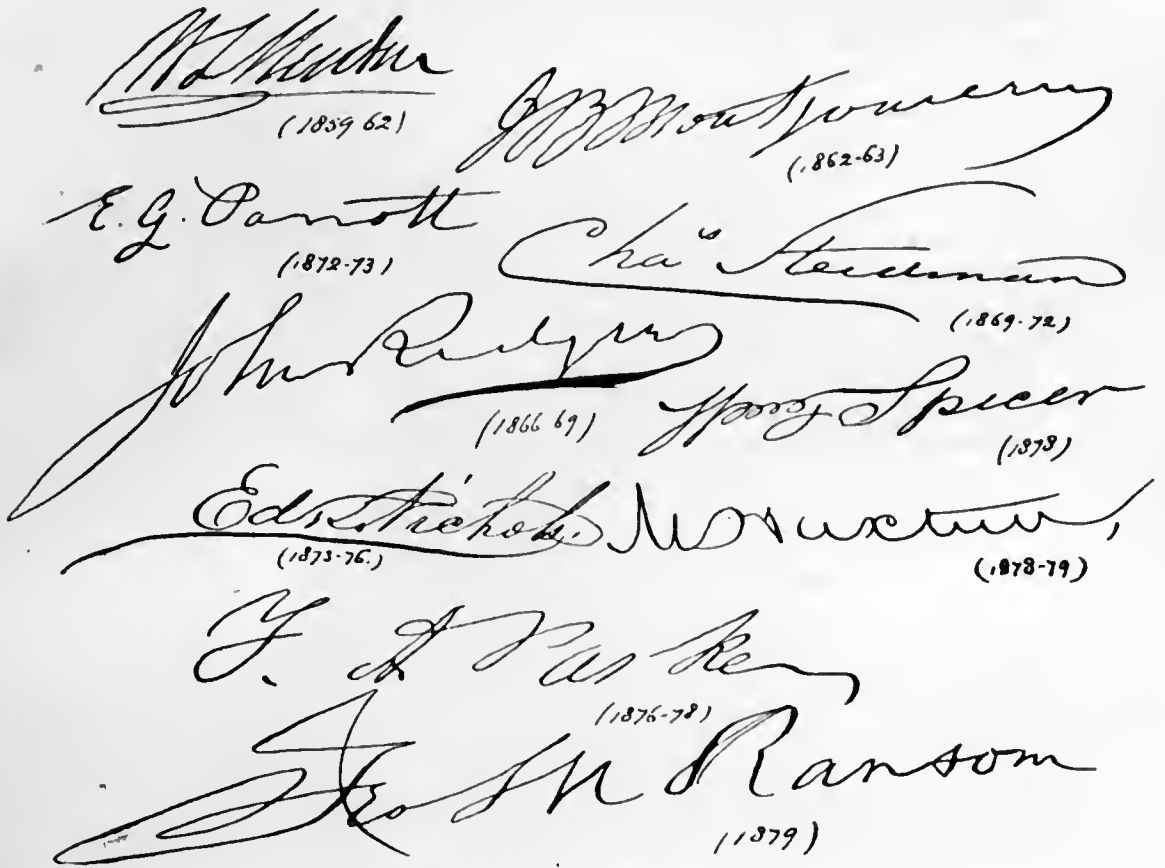 W L Hudson
(1859 62)
J B Montgomery
(1862-63)
E. G. Parrott
(1872-73)
Chas Steedman
(1869-72)
John Rodgers
(1866 69)
Spicer
(1878)
Ed. T. Nichols.
(1873-76.)
(1878-79)
F. A Parker
(1876-78)
Geo M Ransom
(1879)